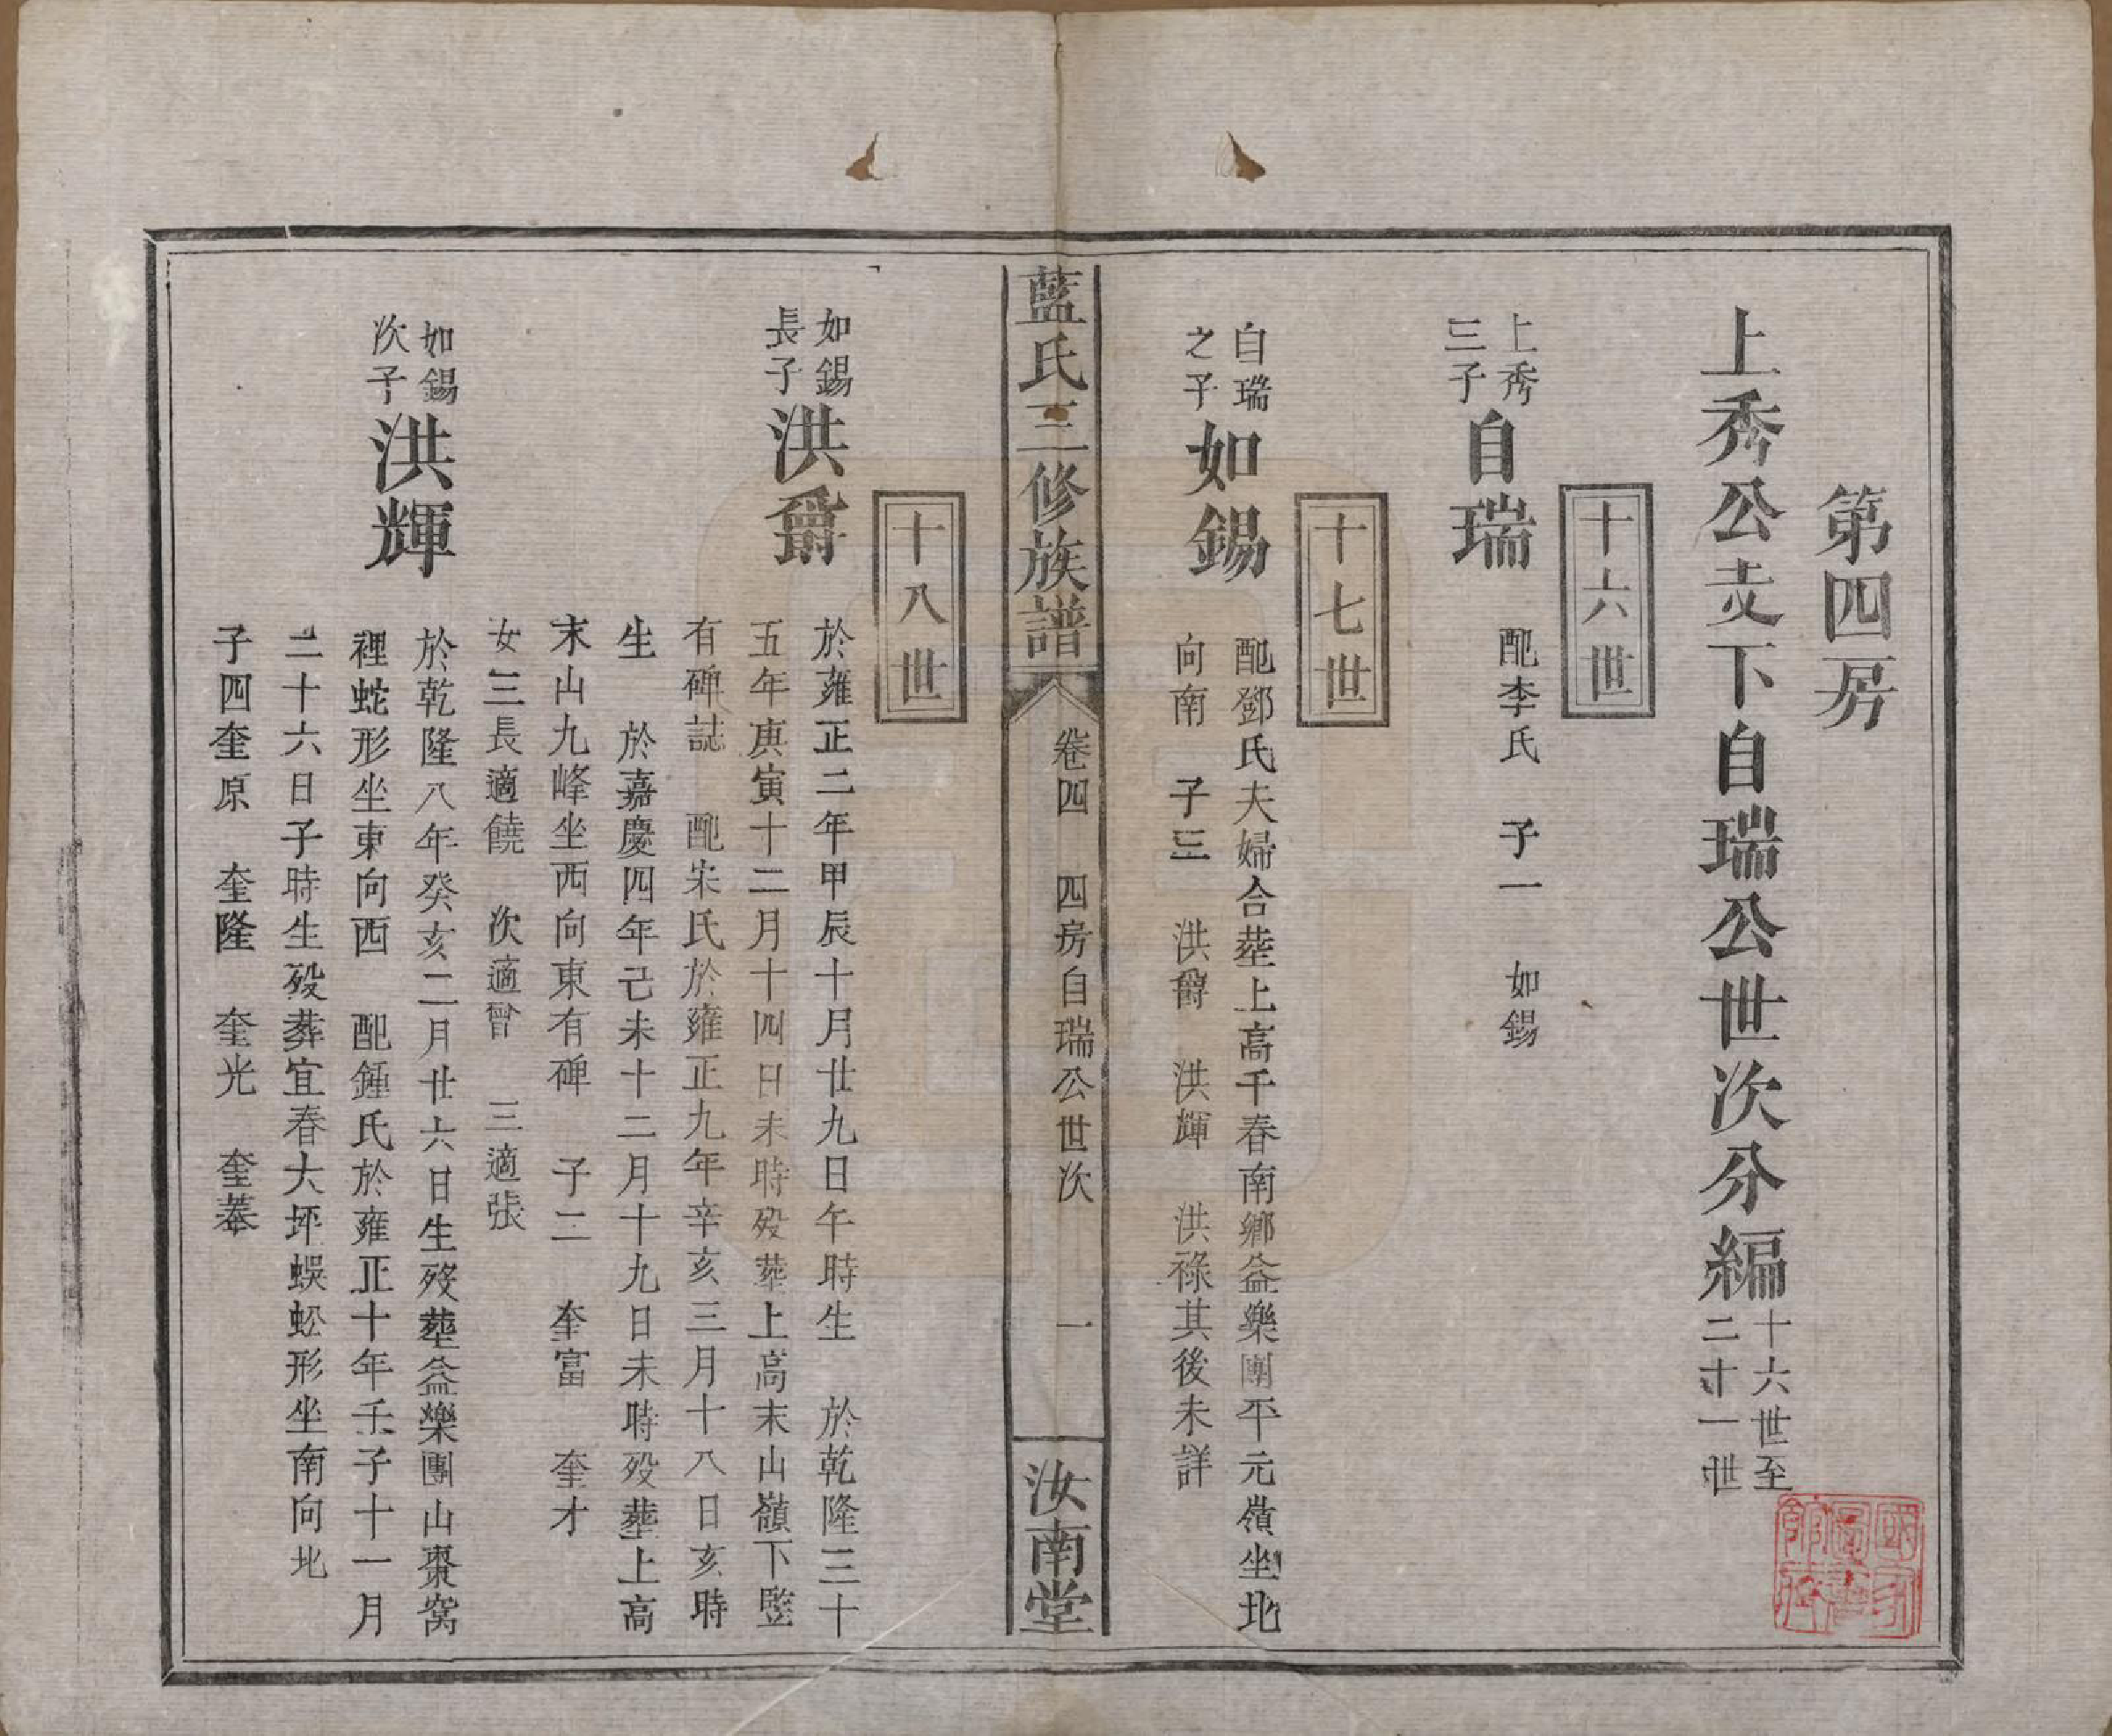 第四房
上秀公支下自瑞公世次分編
十六世至
二十一世
十六世
上秀
三子
自瑞
配李氏　子一　如錫
十七世
自瑞
之子
如錫
配鄧氏夫婦合葬上高千春南鄉益樂團平元嶺坐北
向南　子三　洪爵　洪輝　洪祿其後未詳
藍氏三修族譜
卷四　四房自瑞公世次　一
汝南堂
十八世
如錫
長子
洪爵
於雍正二年甲辰十月廿九日午時生　於乾隆三十
五年庚寅十二月十四日未時歿葬上高末山嶺下塋
有碑誌　配宋氏於雍正九年辛亥三月十八日亥時
生　於嘉慶四年己未十二月十九日未時歿葬上高
末山九峰坐西向東有碑　子二　奎富　奎才
女三長適饒　次適曾　三適張
如錫
次子
洪輝
於乾隆八年癸亥二月廿六日生歿葬益樂團山棗窩
裡蛇形坐東向西　配鍾氏於雍正十年壬子十一月
二十六日子時生歿葬宜春大坪蜈蚣形坐南向北
子四奎原　奎隆　奎光　奎摹
國家圖書館藏